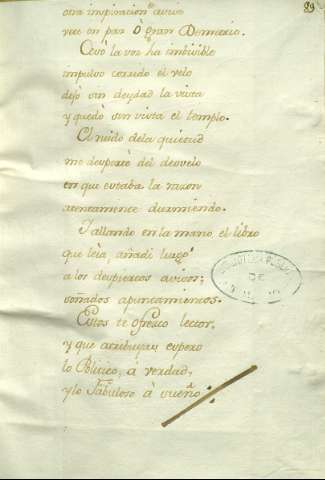 89
otra inspiracion avisò
vee en paz ò gran Denmario.
Cesò la voz, ha imbisible
impulso corrido el velo
dejò sin deydad la vista
y quedò sin vista el templo.
El ruido dela quietud
me despertò del desvelo
en que estaba la razon
atentamente durmiendo.
Y allando en la mano, el libro
que leìa, añadì luego
a los despiertos avisos,
soñados apuntamientos.
Estos te ofresco lector,
y que atribuyas espero
lo Politico, à verdad,
y lo Fabuloso à sueño.
BIBLIOTECA
DE